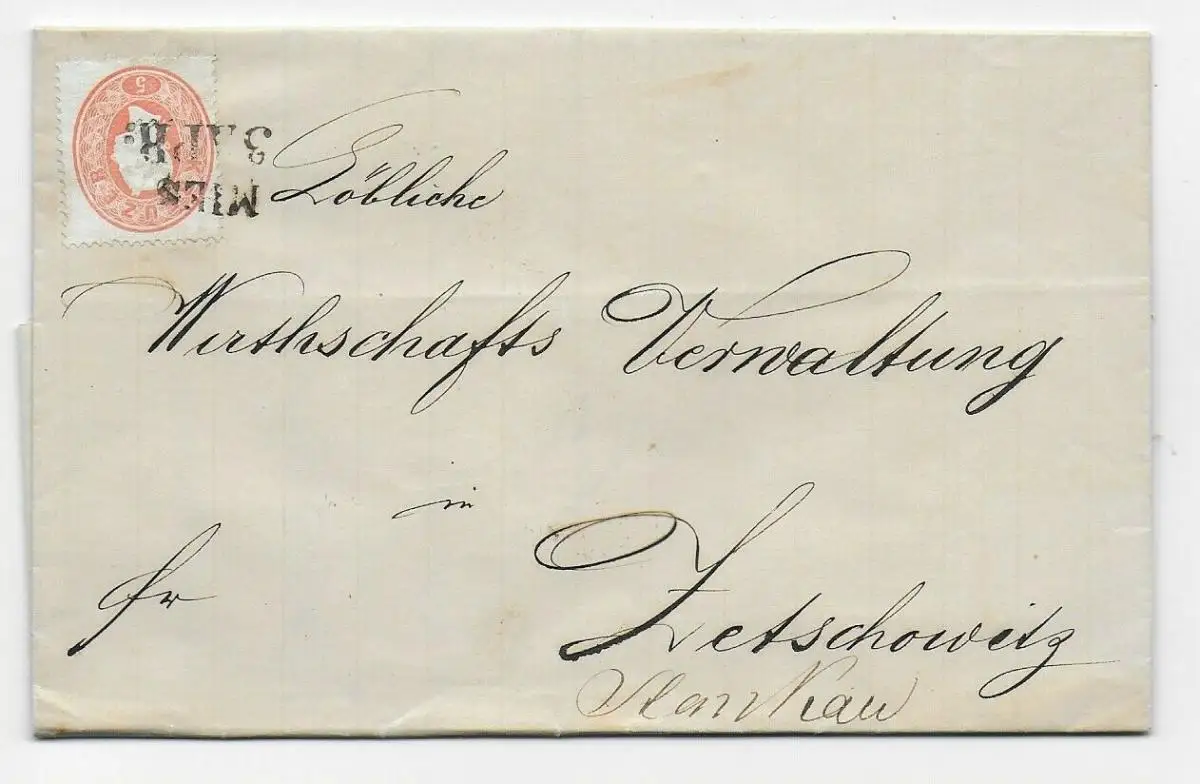 5
MIES
3. APR:
Löbliche
Wirthschafts Verwaltung
in
fr
Zetschowitz
Stankau